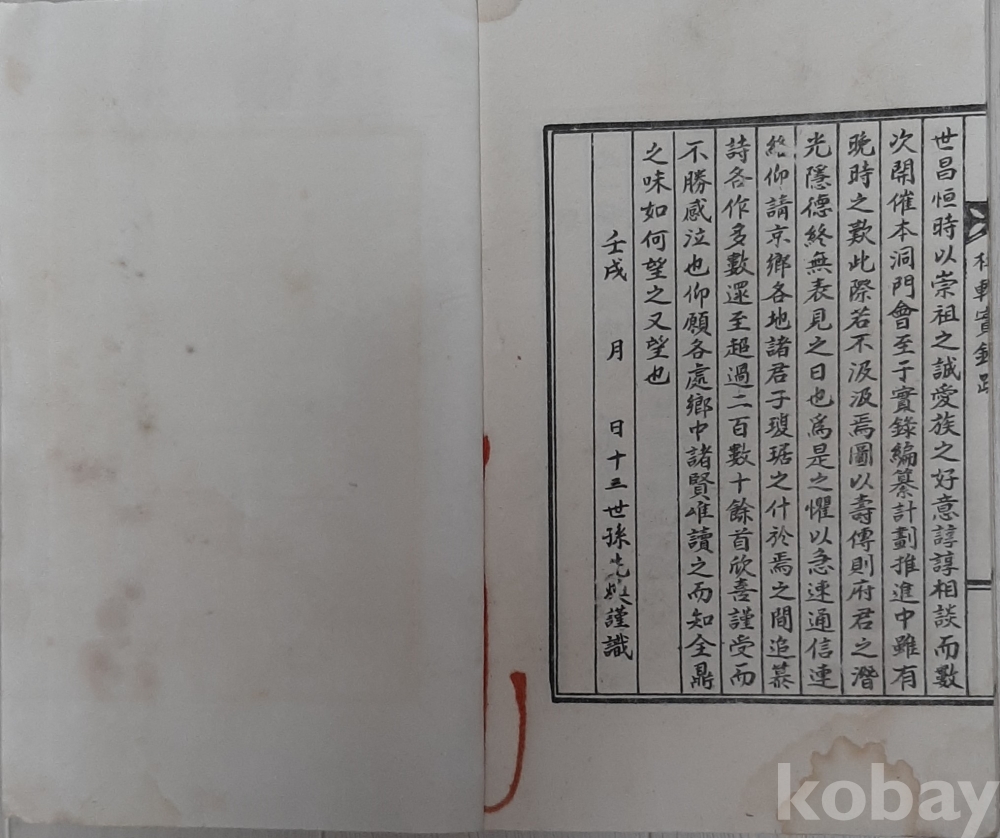 軒實錄跋
世昌恒時以崇祖之誠愛族之好意諄諄相談而數
次開催本洞門會至于實錄編纂計劃推進中雖有
晩時之歎此際若不汲汲焉圖以壽傳則府君之潛
光隱德終無表見之日也爲是之懼以急速通信連
絡仰請京鄉各地諸君子瓊琚之什於焉之間追慕
詩各作多數還至超過二百數十餘首欣喜謹受而
不勝感泣也仰願各處鄉中諸賢唯讀之而知全鼎
之味如何望之又望也
壬戌 月 日十三世孫 謹識
kobay